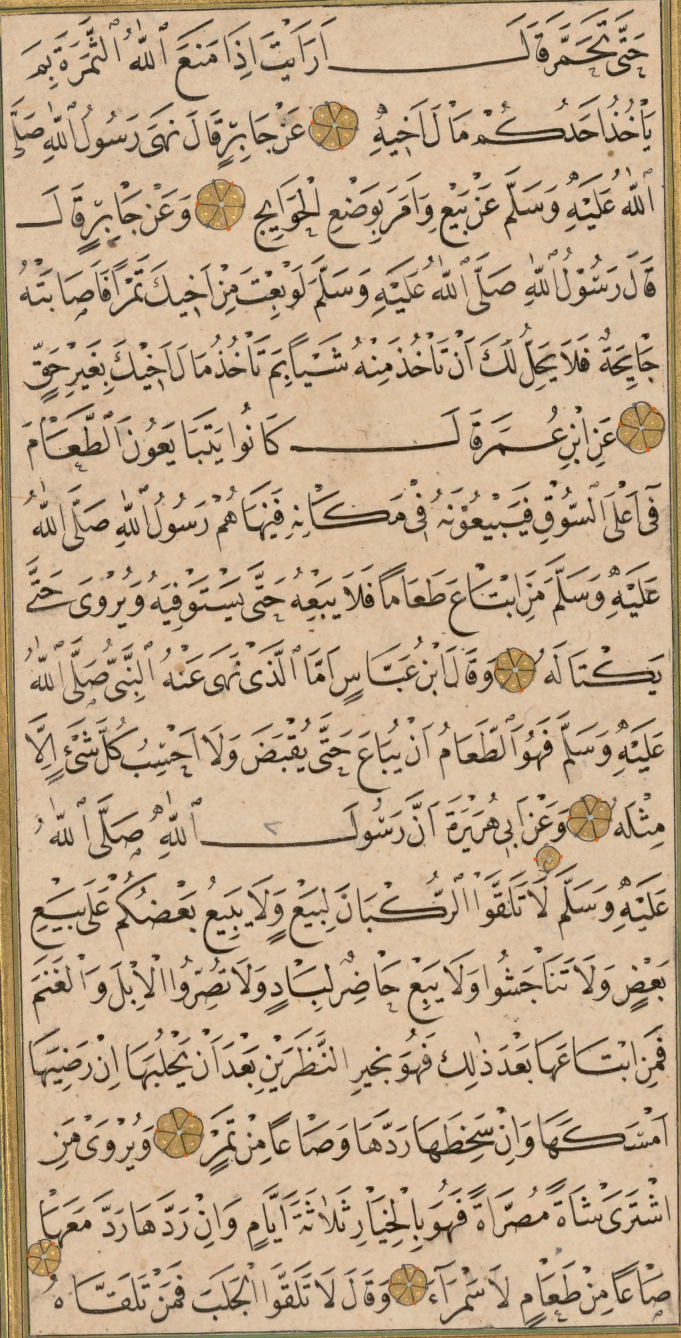 حَتَّى تَحْمَرَّ قَالَ اَرَاَيْتَ اِذَا مَنَعَ اللّٰهُ الثَّمَرَةَ بِمَ
يَأْخُذُ اَحَدُكُمْ مَالَ اَخِيهِ عَنْ جَابِرٍ قَالَ نَهَى رَسُولُ اللّٰهِ صَلَّى
اللّٰهُ عَلَيْهِ وَسَلَّمَ عَنْ بَيْعِ وَاَمَرَ بِوَضْعِ الْجَوَايِحِ وَعَنْ جَابِرٍ قَالَ
قَالَ رَسُوْلُ اللّٰهِ صَلَّى اللّٰهُ عَلَيْهِ وَسَلَّمَ لَوْ بِعْتَ مِنْ اَخِيكَ تَمْرًا فَاَصَابَتْهُ
جَايِحَةٌ فَلَا يَحِلُّ لَكَ اَنْ تَاْخُذَ مِنْهُ شَيْاً بِمَ تَاْخُذُ مَالَ اَخِيْكَ بِغَيْرِ حَقٍّ
عَنِ ابْنِ عُمَرَ قَالَ كَانُوا يَتَبَايَعُونَ الطَّعَامَ
فِى اَعْلَى السُّوْقِ فَيَبِيْعُوْنَهُ فِىْ مَكَانِهِ فَنَهَاهُمْ رَسُولُ اللّٰهِ صَلَّى اللّٰهُ
عَلَيْهِ وَسَلَّمَ مَنِ ابْتَاعَ طَعَامًا فَلَا يَبِعْهُ حَتَّى يَسْتَوْفِيَهُ وَيُرْوَى حَتَّى
يَكْتَالَهُ وَقَالَ ابْنُ عَبَّاسٍ اَمَّا الَّذِىْ نَهَى عَنْهُ النَّبِىُّ صَلَّى اللّٰهُ
عَلَيْهِ وَسَلَّمَ فَهُوَ الطَّعَامُ اَنْ يُبَاعَ حَتَّى يُقْبَضَ وَلَا اَحْسِبُ كُلَّ شَىْءٍ اِلَّا
مِثْلَهُ وَعَنْ اَبِى هُرَيْرَةَ اَنَّ رَسُولَ اللّٰهِ صَلَّى اللّٰهُ
عَلَيْهِ وَسَلَّمَ لَا تَلَقَّوْا الرُّكْبَانَ لِبَيْعٍ وَلَا يَبِيعُ بَعْضُكُمْ عَلَى بَيْعِ
بَعْضٍ وَلَا تَنَاجَشُوا وَلَا يَبِعْ حَاضِرٌ لِبَادٍ وَلَا تُصَرُّوا الْاِبِلَ وَالْغَنَمَ
فَمَنِ ابْتَاعَهَا بَعْدَ ذٰلِكَ فَهُوَ بِخَيرِ النَّظَرَيْنِ بَعْدَ اَنْ يَحْلُبَهَا اِنْ رَضِيَهَا
اَمْسَكَهَا وَاِنْ سَخِطَهَا رَدَّهَا وَصَاعًا مِنْ تَمْرٍ وَيُرْوَىْ مَنِ
اشْتَرَىْ شَاةً مُصَرَّاةً فَهُوَ بِالْخِيَارِ ثَلَاثَةَ اَيَّامٍ وَاِنْ رَدَّهَا رَدَّ مَعَهَا
صَاعًا مِنْ طَعَامٍ لَا سَمْرَاءَ وَقَالَ لَا تَلَقَّوُا الْجَلَبَ فَمَنْ تَلَقَّاهُ